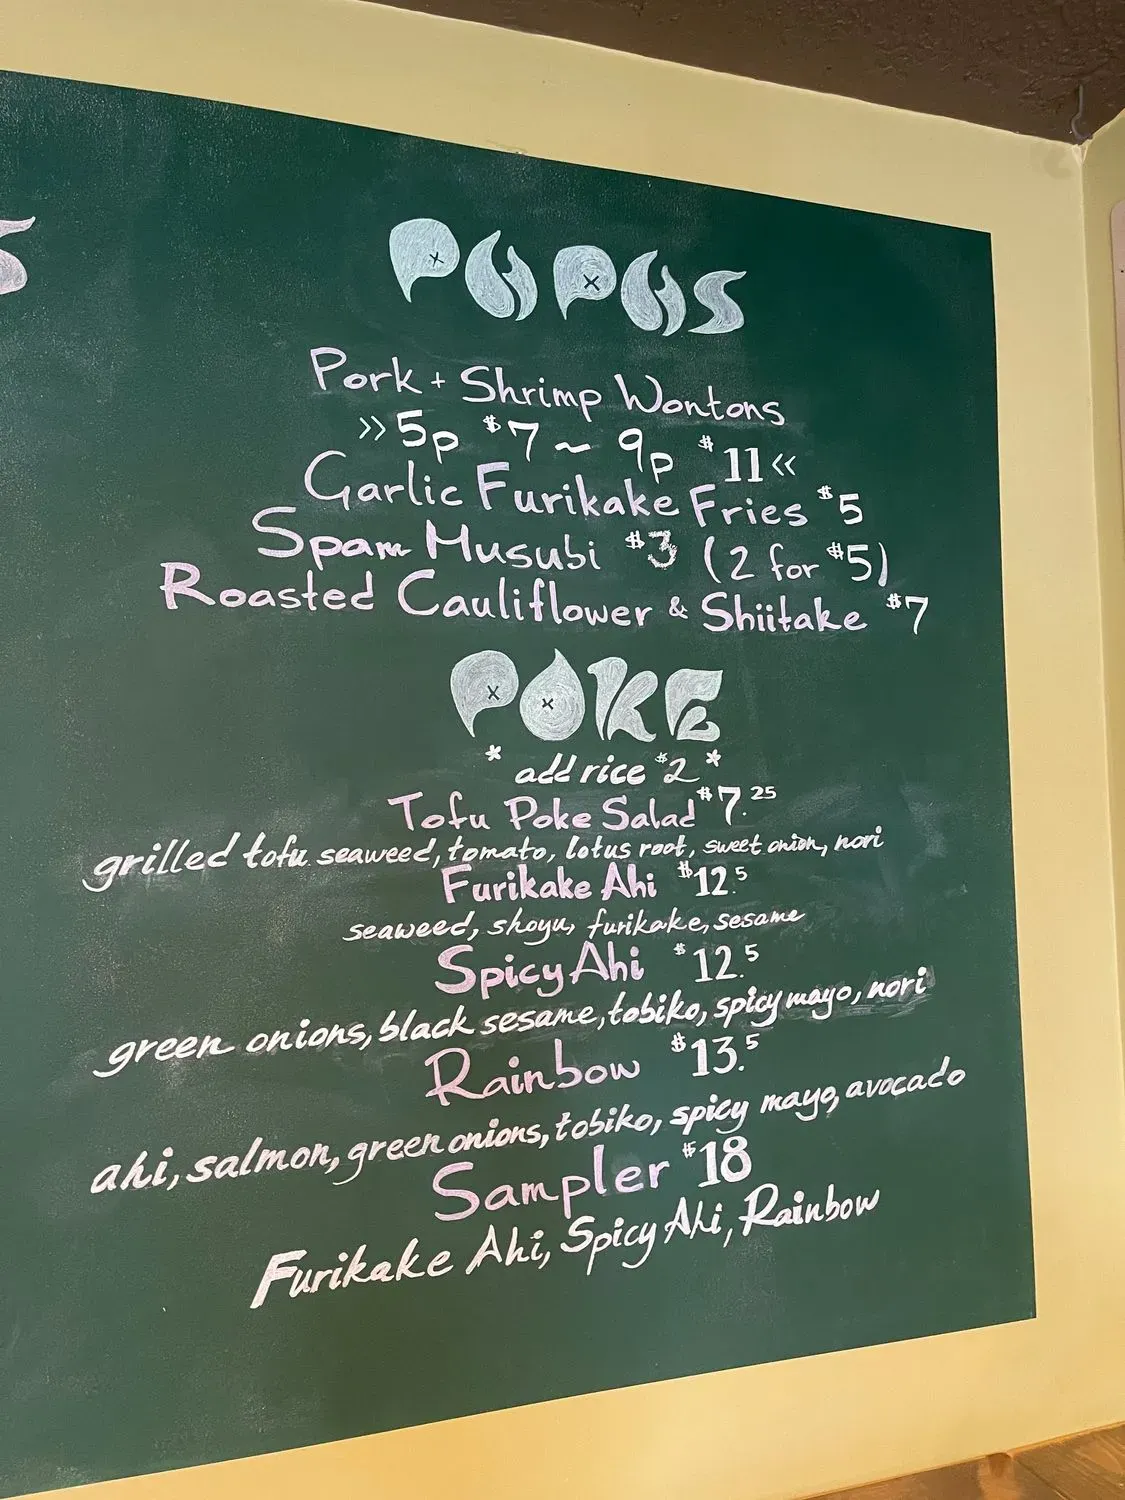 S
PUPUS
Pork + Shrimp Wontons
>> 5p $7 ~ 9p $11 <<
Garlic Furikake Fries $5
Spam Musubi $3 (2 for $5)
Roasted Cauliflower & Shiitake $7
POKE
* add rice $2 *
Tofu Poke Salad $7.25
grilled tofu seaweed, tomato, lotus root, sweet onion, nori
Furikake Ahi $12.5
seaweed, shoyu, furikake, sesame
Spicy Ahi $12.5
green onions, black sesame, tobiko, spicy mayo, nori
Rainbow $13.5
ahi, salmon, green onions, tobiko, spicy mayo, avocado
Sampler $18
Furikake Ahi, Spicy Ahi, Rainbow